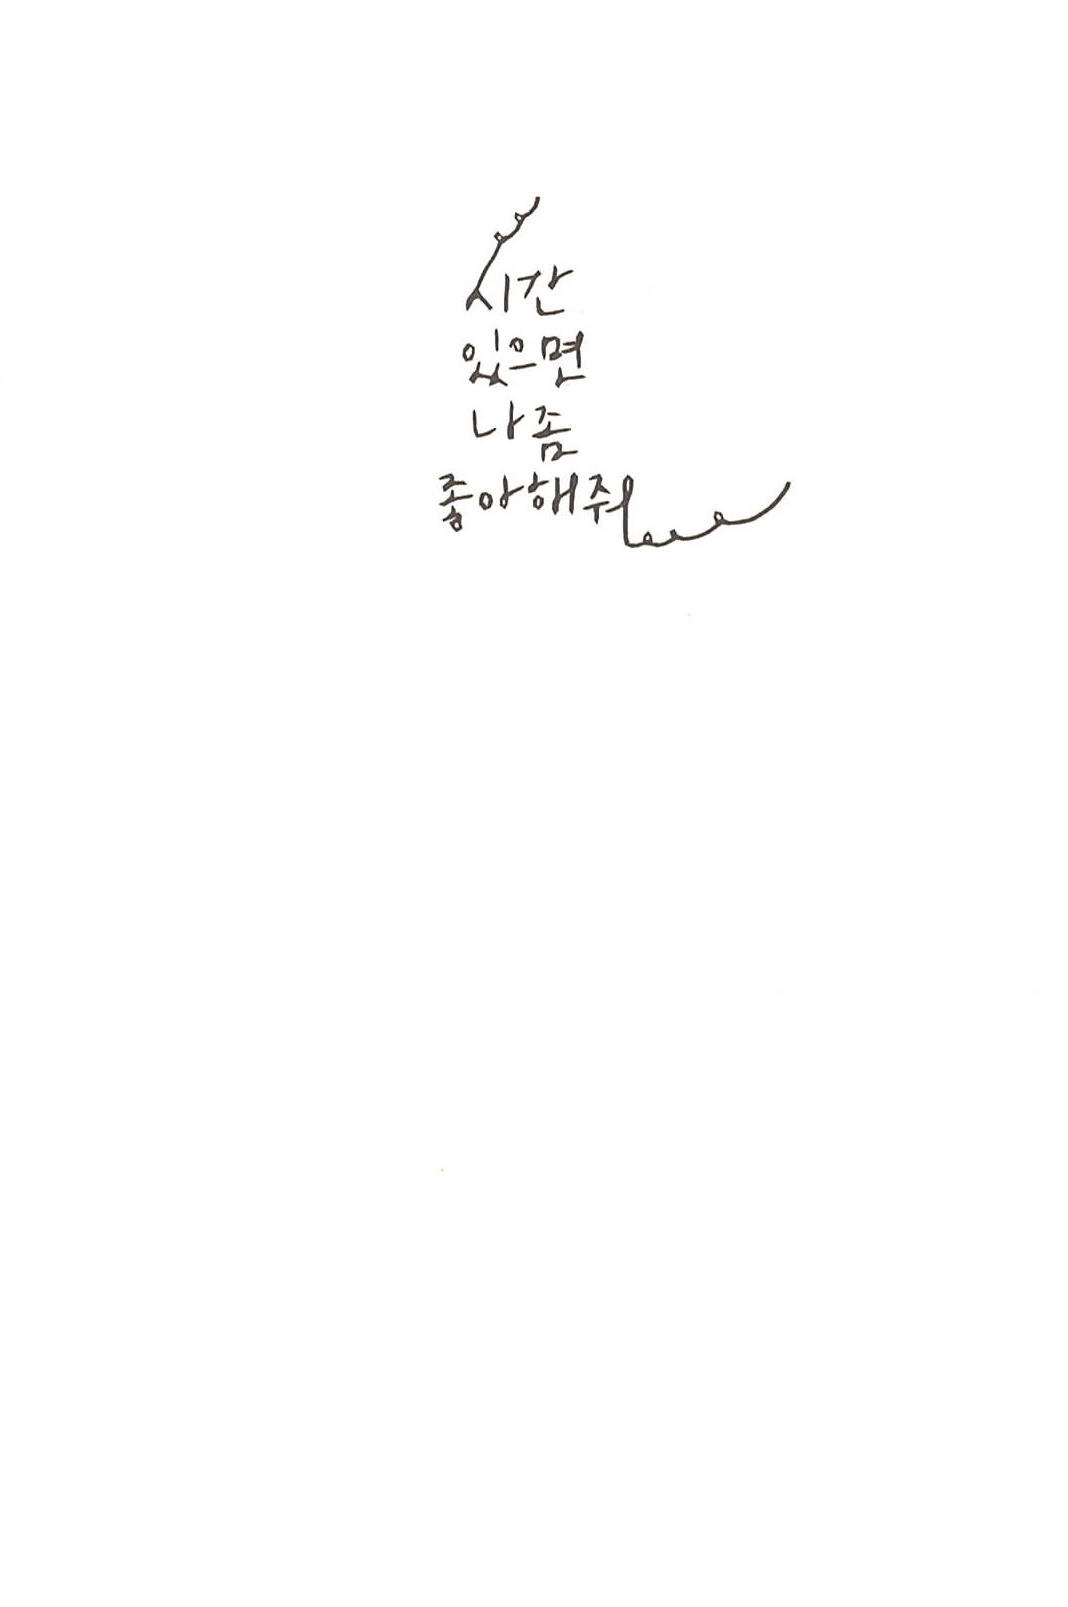 시간
있으면
나좀
좋아해줘